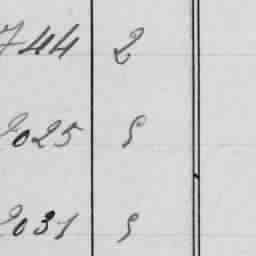 744 2
2025 5
2031 5